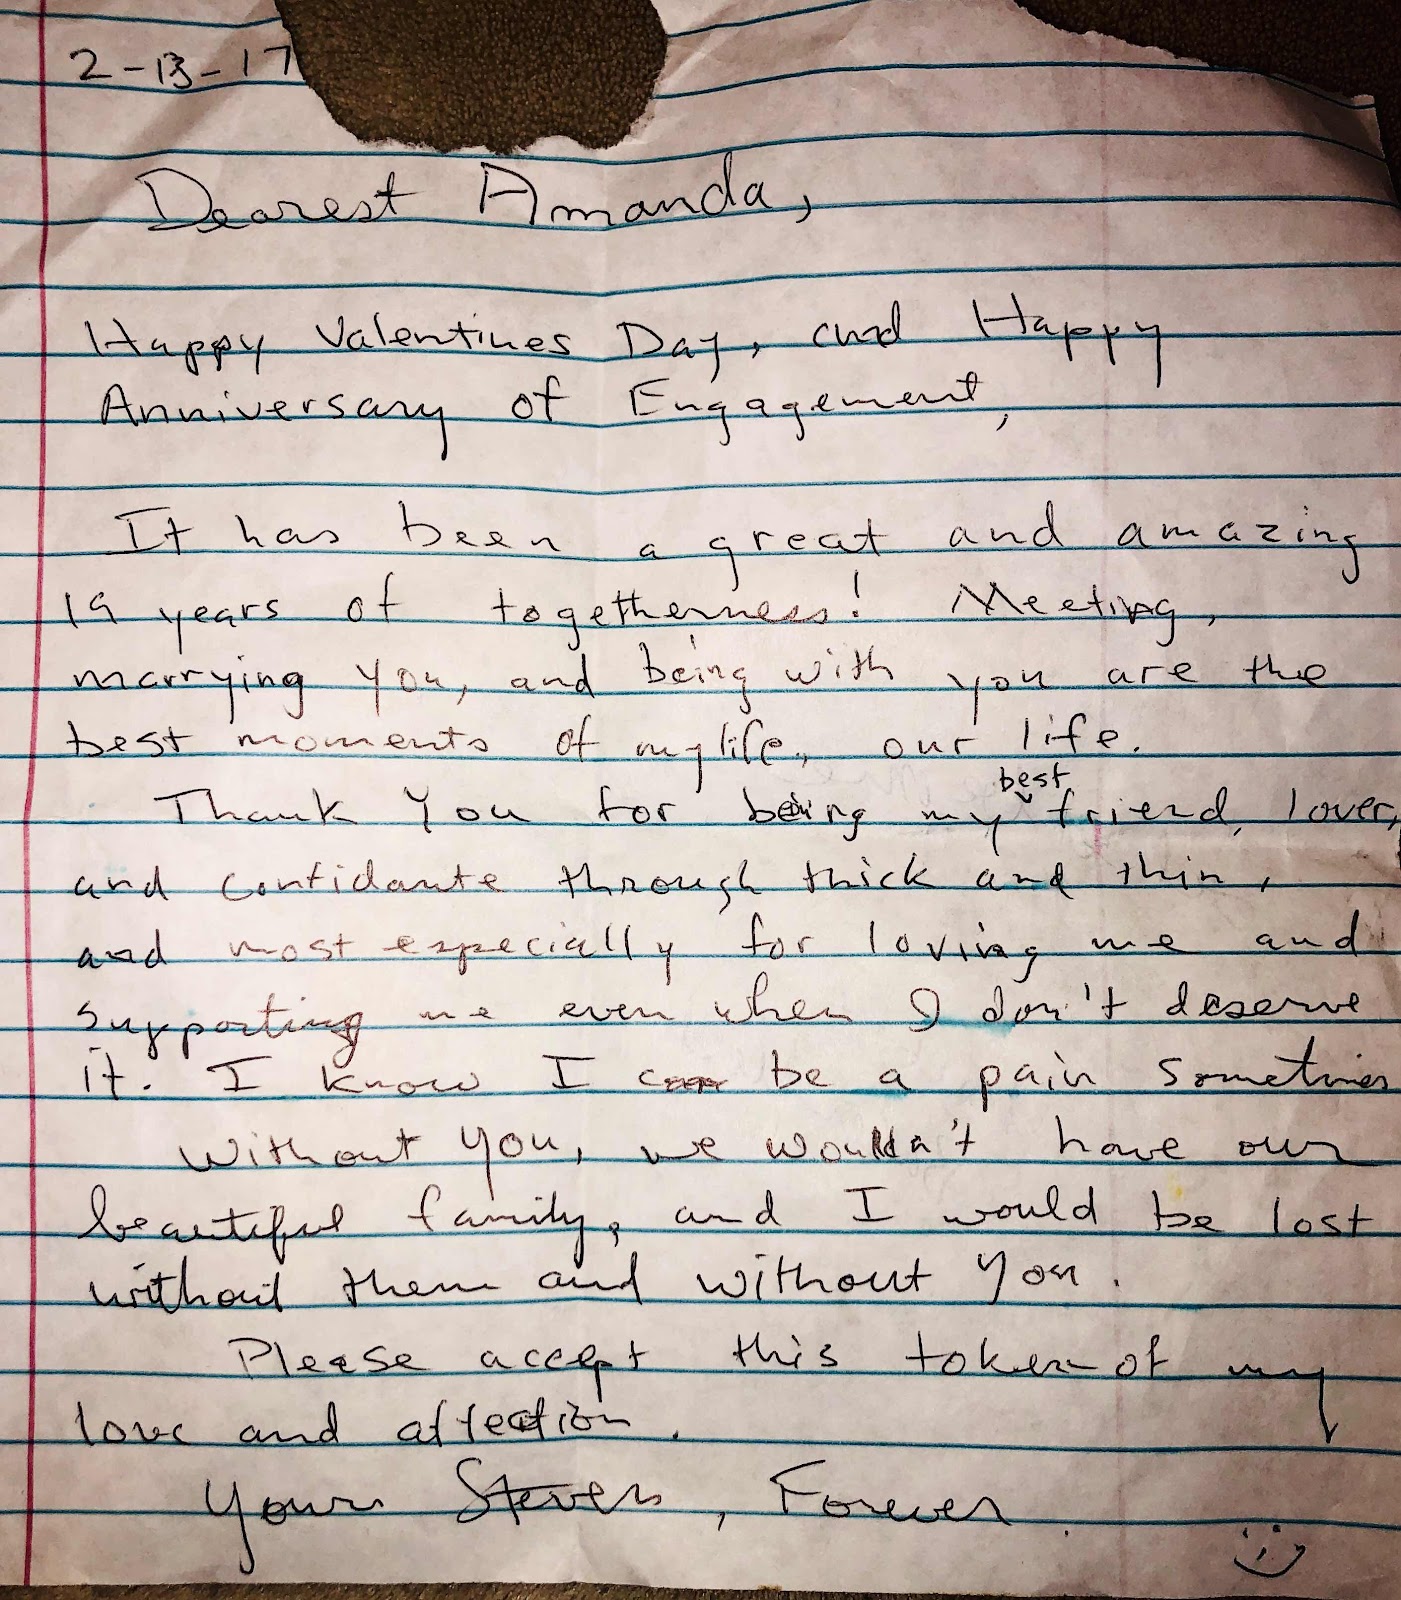 2-13-17
Dearest Amanda,
Happy Valentines Day, and Happy
Anniversary of Engagement,
It has been a great and amazing
19 years of togetherness! Meeting,
marrying you, and being with you are the
best moments of my life, our life.
Thank You for being my best friend, lover,
and confidante through thick and thin,
and most especially for loving me and
supporting me even when I don't deserve
it. I know I can be a pain sometimes
Without you, we wouldn't have our
beautiful family, and I would be lost
without them and without you.
Please accept this token of my
love and affection.
Yours Steven, Forever